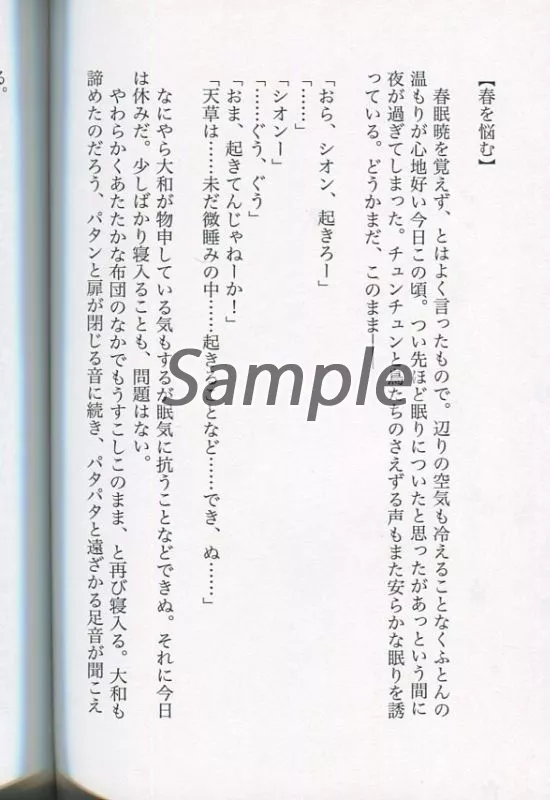 【春を悩む】
春眠暁を覚えず、とはよく言ったもので。辺りの空気も冷えることなくふとんの
温もりが心地好い今日この頃。つい先ほど眠りについたと思ったがあっという間に
夜が過ぎてしまった。チュンチュンと鳥たちのさえずる声もまた安らかな眠りを誘
っている。どうかまだ、このまま――
「おら、シオン、起きろー」
「……」
「シオンー」
「……ぐう、ぐう」
「おま、起きてんじゃねーか！」
「天草は……未だ微睡みの中……起きることなど……でき、ぬ……」
なにやら大和が物申している気もするが眠気に抗うことなどできぬ。それに今日
は休みだ。少しばかり寝入ることも、問題はない。
やわらかくあたたかな布団のなかでもうすこしこのまま、と再び寝入る。大和も
諦めたのだろう、パタンと扉が閉じる音に続き、パタパタと遠ざかる足音が聞こえ
る。
Sample